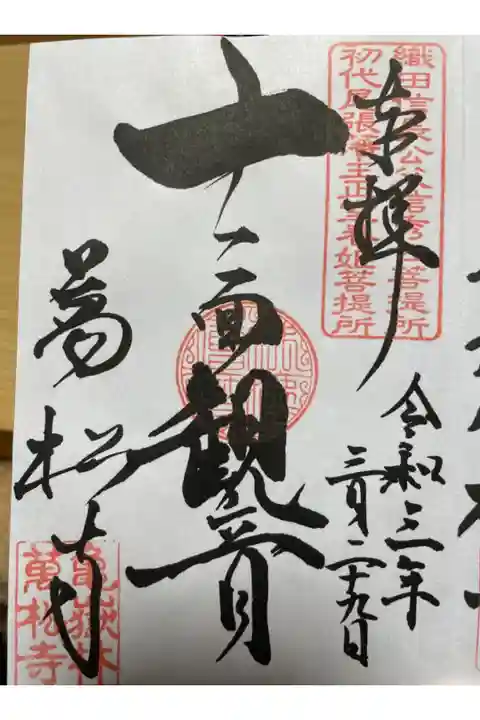 奉拝
織田信長公父信秀公菩提所
初代尾張藩主正室春姫菩提所
令和三年
三月二十九日
十一面観音
萬松寺
亀嶽林
萬松寺